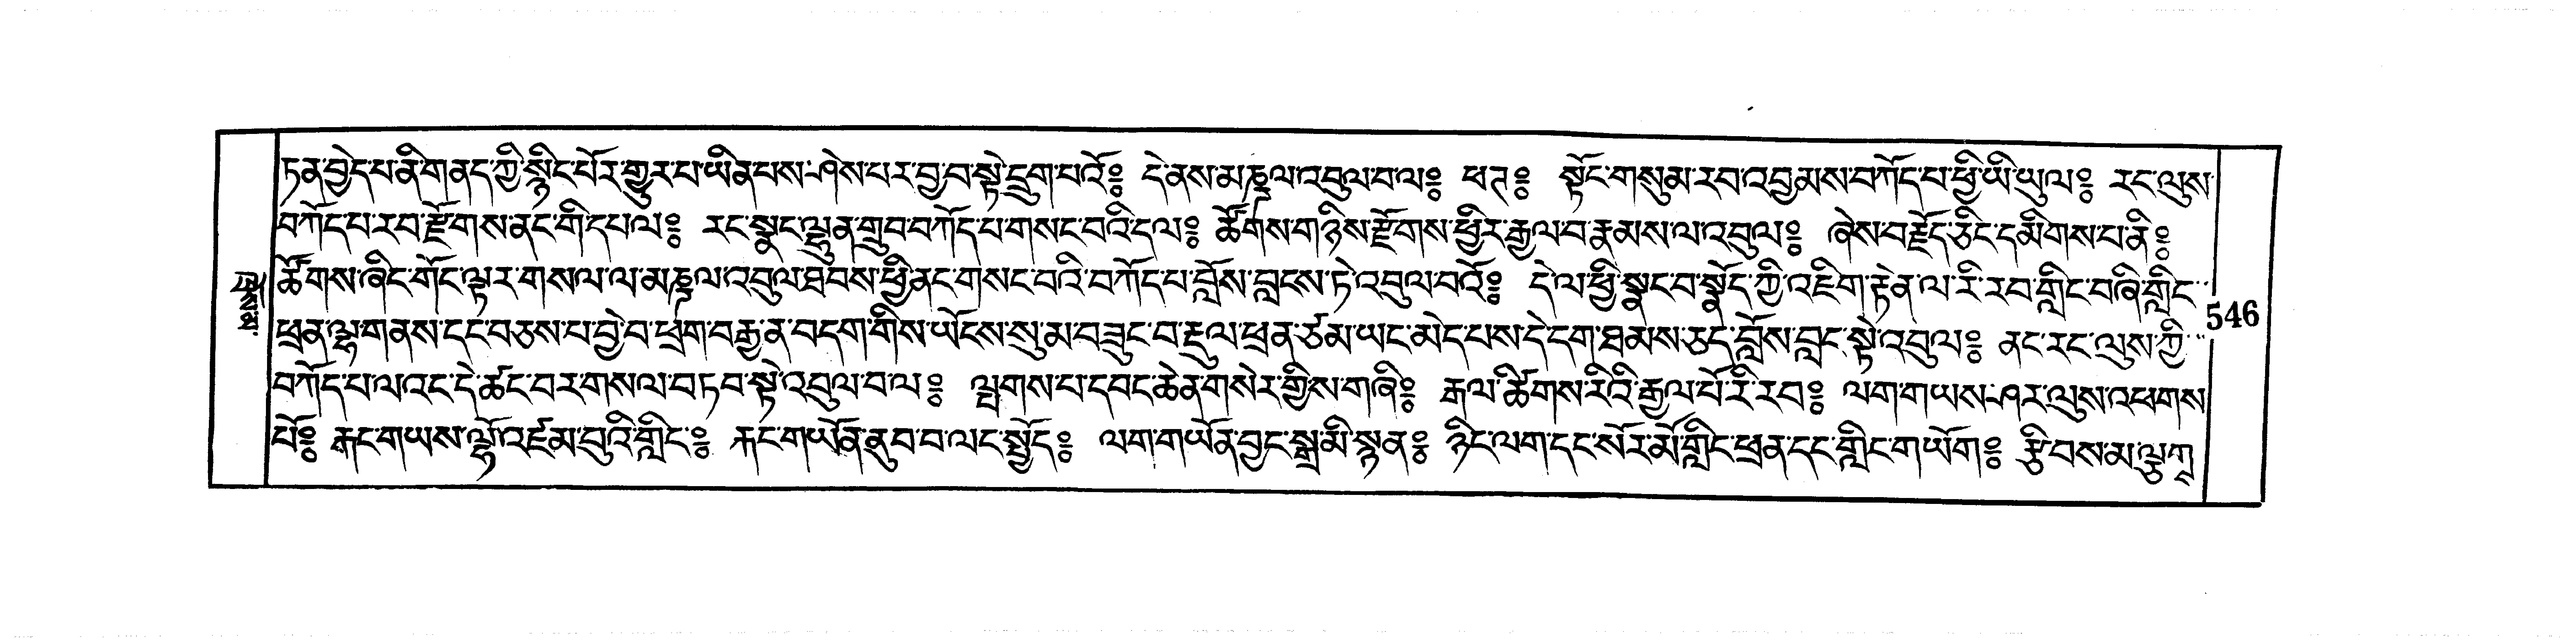 ཏན་བྱེད་པ་ནི་གནད་ཀྱི་སྙིང་པོར་གྱུར་པ་ཡིན་པས་ཤེས་པར་བྱ་བ་སྟེ་དྲུག་པའོ༔ དེ་ནས་མཎྜལ་འབུལ་བ་ལ༔ ཕཊ༔ སྟོང་གསུམ་རབ་འབྱམས་བཀོད་པ་ཕྱི་ཡི་ཡུལ༔ རང་ལུས་
བཀོད་པ་རབ་རྫོགས་ནང་གི་དཔལ༔ རང་སྣང་ལྷུན་གྲུབ་བཀོད་པ་གསང་བའི་དལ༔ ཚོགས་གཉིས་རྫོགས་ཕྱིར་རྒྱལ་བ་རྣམས་ལ་འབུལ༔ ཞེས་བརྗོད་ཅིང་དམིགས་པ་ནི༔
ཚོགས་ཞིང་གོང་ལྟར་གསལ་ལ་མཎྜལ་འབུལ་ཐབས་ཕྱི་ནང་གསང་བའི་བཀོད་པ་བློས་བླངས་ཏེ་འབུལ་བའོ༔ དེ་ལ་ཕྱི་སྣང་བ་སྣོད་ཀྱི་འཇིག་རྟེན་ལ་རི་རབ་གླིང་བཞི་གླིང་
ཕྲན་ལྷ་གནས་དང་བཅས་པ་བྱེ་བ་ཕྲག་བརྒྱ་ན་བདག་གིས་ཡོངས་སུ་མ་བཟུང་བ་རྡུལ་ཕྲན་ཙམ་ཡང་མེད་པས་དེ་དག་ཐམས་ཅད་བློས་བླང་སྟེ་འབུལ༔ ནང་རང་ལུས་ཀྱི་
546
བཀོད་པ་ལའང་དེ་ཚང་བར་གསལ་བཏབ་སྟེ་འབུལ་བ་ལ༔ ལྤགས་པ་དབང་ཆེན་གསེར་གྱིས་གཞི༔ རྒལ་ཚིགས་རིའི་རྒྱལ་པོ་རི་རབ༔ ལག་གཡས་ཤར་ལུས་འཕགས་
པོ༔ རྐང་གཡས་ལྷོ་འཛམ་བུའི་གླིང་༔ རྐང་གཡོན་ནུབ་བ་ལང་སྤྱོད༔ ལག་གཡོན་བྱང་སྒྲ་མི་སྙན༔ ཉིང་ལག་དང་སོར་མོ་གླིང་ཕྲན་དང་གླིང་གཡོག༔ རྩིབས་མ་ལྕུ་ཀ